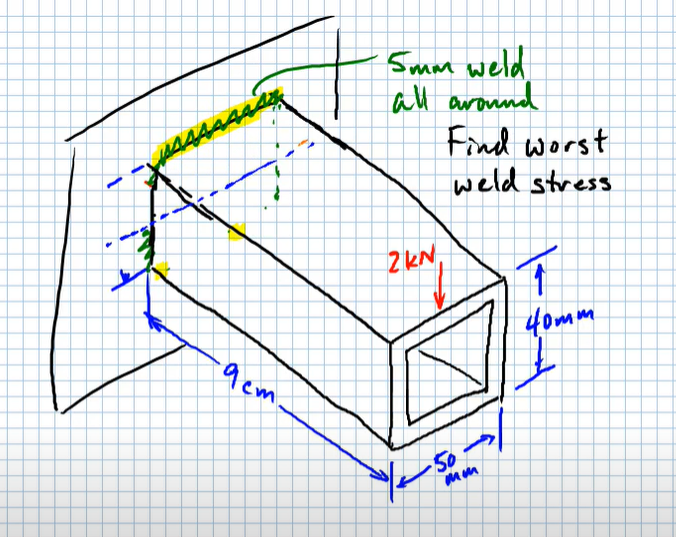 5mm weld
all around
Find worst
weld stress
2kN
40mm
9cm
50
mm